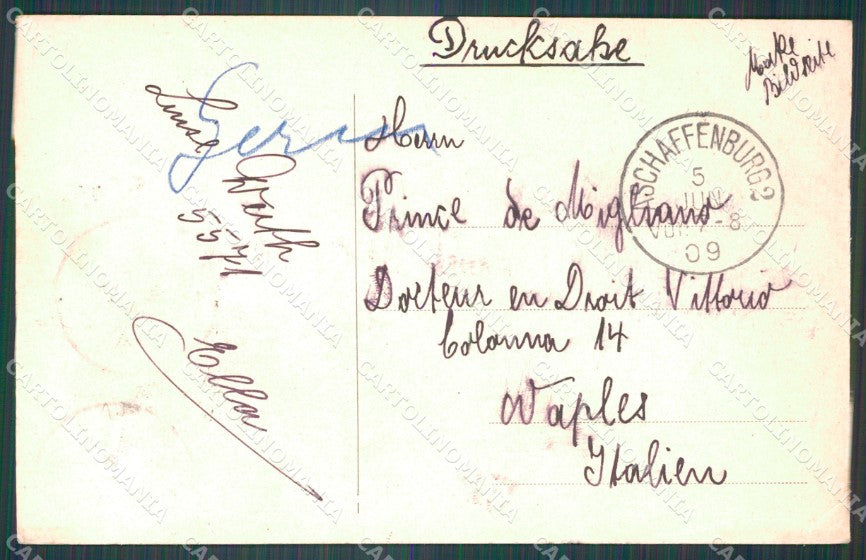 Drucksake
Marke
Bildseite
ASCHAFFENBURG 2
5
JUN
VOR 7-8
09
Herrn
Prince de Migliano
Docteur en Droit Vittorio
Colonna 14
Naples
Italien
Ella
CARTOLINOMANIA